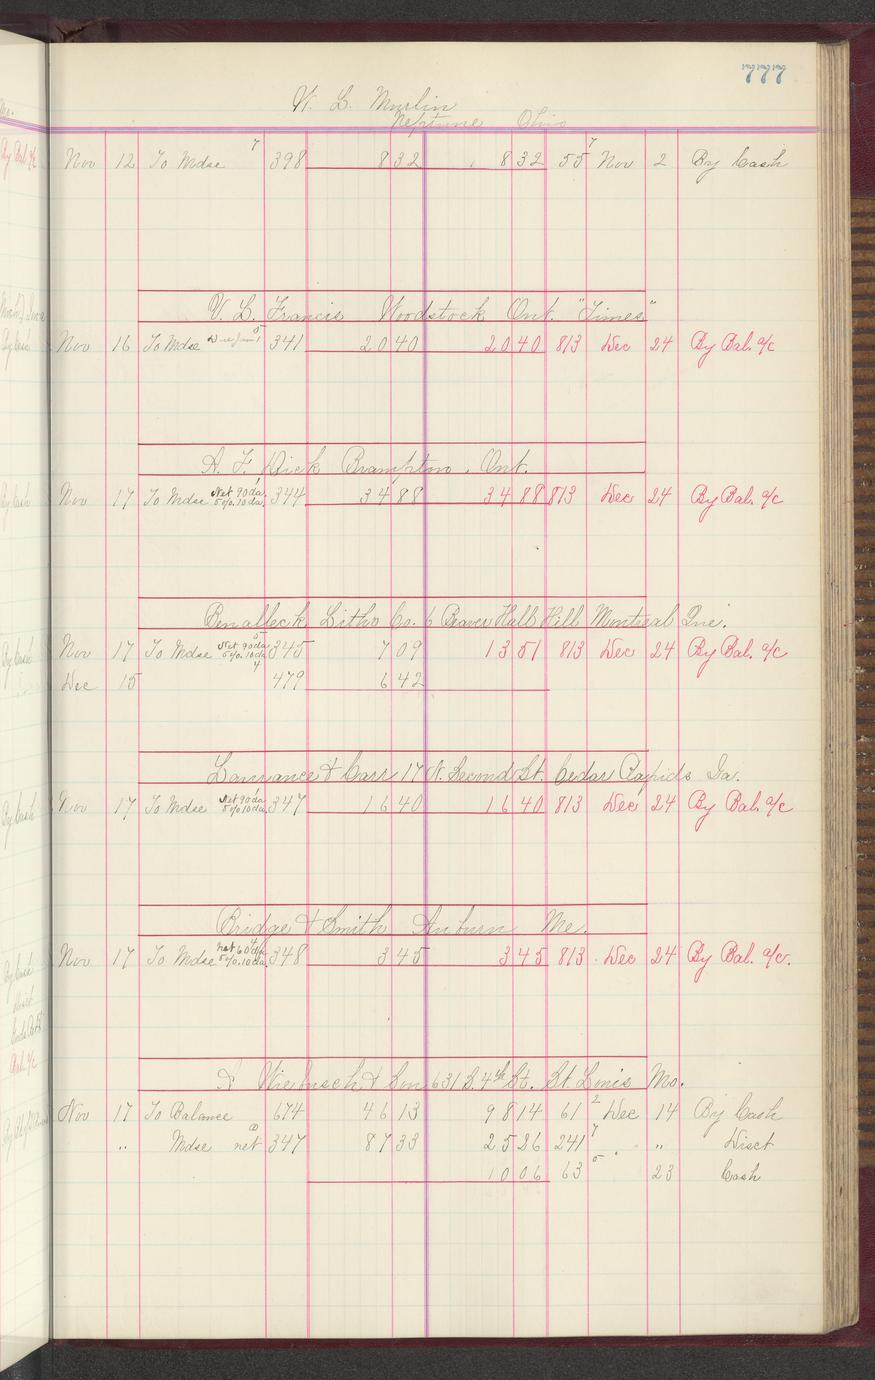 777
W. L. Murlin
Neptune Ohio
Nov 12 To Mdse 7 398 8 32 8 32 55 7 Nov 2 By Cash
V. L. Francis Woodstock Ont. "Times"
Nov 16 To Mdse 341 20 40 20 40 813 Dec 24 By Bal. a/c
A. F. Dick Brampton, Ont.
Nov 17 To Mdse Net 90 da. 5%. 10 da. 344 34 88 34 88 813 Dec 24 By Bal. a/c
Benalleck Litho Co. 6 Beaver Hall Hill Montreal Que.
Nov 17 To Mdse Net 90 da 5%. 10 da 345 7 09 13 51 813 Dec 24 By Bal. a/c
Dec 15 4 479 6 42
& Carr 17 N. Second St. Cedar Rapids Ia.
Nov 17 To Mdse Net 90 da 5%10 da. 347 16 40 16 40 813 Dec 24 By Bal. a/c
Bridge & Smith Auburn Me.
Nov 17 To Mdse net 60 da 5%. 10 da. 348 3 45 3 45 813 Dec 24 By Bal. a/c.
A Wiebusch & Son 631 S. 4th St. St. Louis Mo.
Nov 17 To Balance 674 46 13 98 14 61 2 Dec 14 By Cash
" Mdse net 347 87 33 25 26 241 7 " " Disct
10 06 63 5 23 Cash